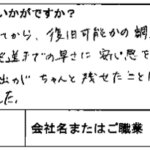 いかがですか？
てから、復旧可能かの調
発送までの早さに安心感を
出のが ちゃんと残せたことに
した。
会社名またはご職業